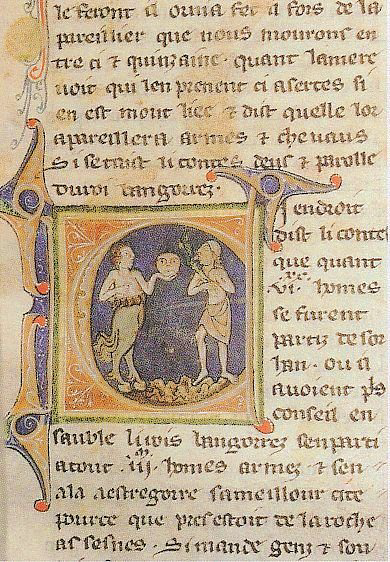 le feront il ouna fet a fors de la
pareillier que nous mourons en
tre ci & quinzaine. quant lamere
uoit qui len prenent ci acertes si
en est mout liee & dist quelle lor
apareillera armes & cheuaus
Si se taist li contes deus & parolle
dou roi langorrez.
E endroit
dist li conte
que quant
.vi. homes
se furent
partiz de sor
han. ou il
auoient pls
conseil en
samble li rois langorrez sen parti
atout .iii. homes armez & sen
ala aestregorre sameillour cite
pource que pres estoit de laroche
as sesnes. Si mande genz & sou